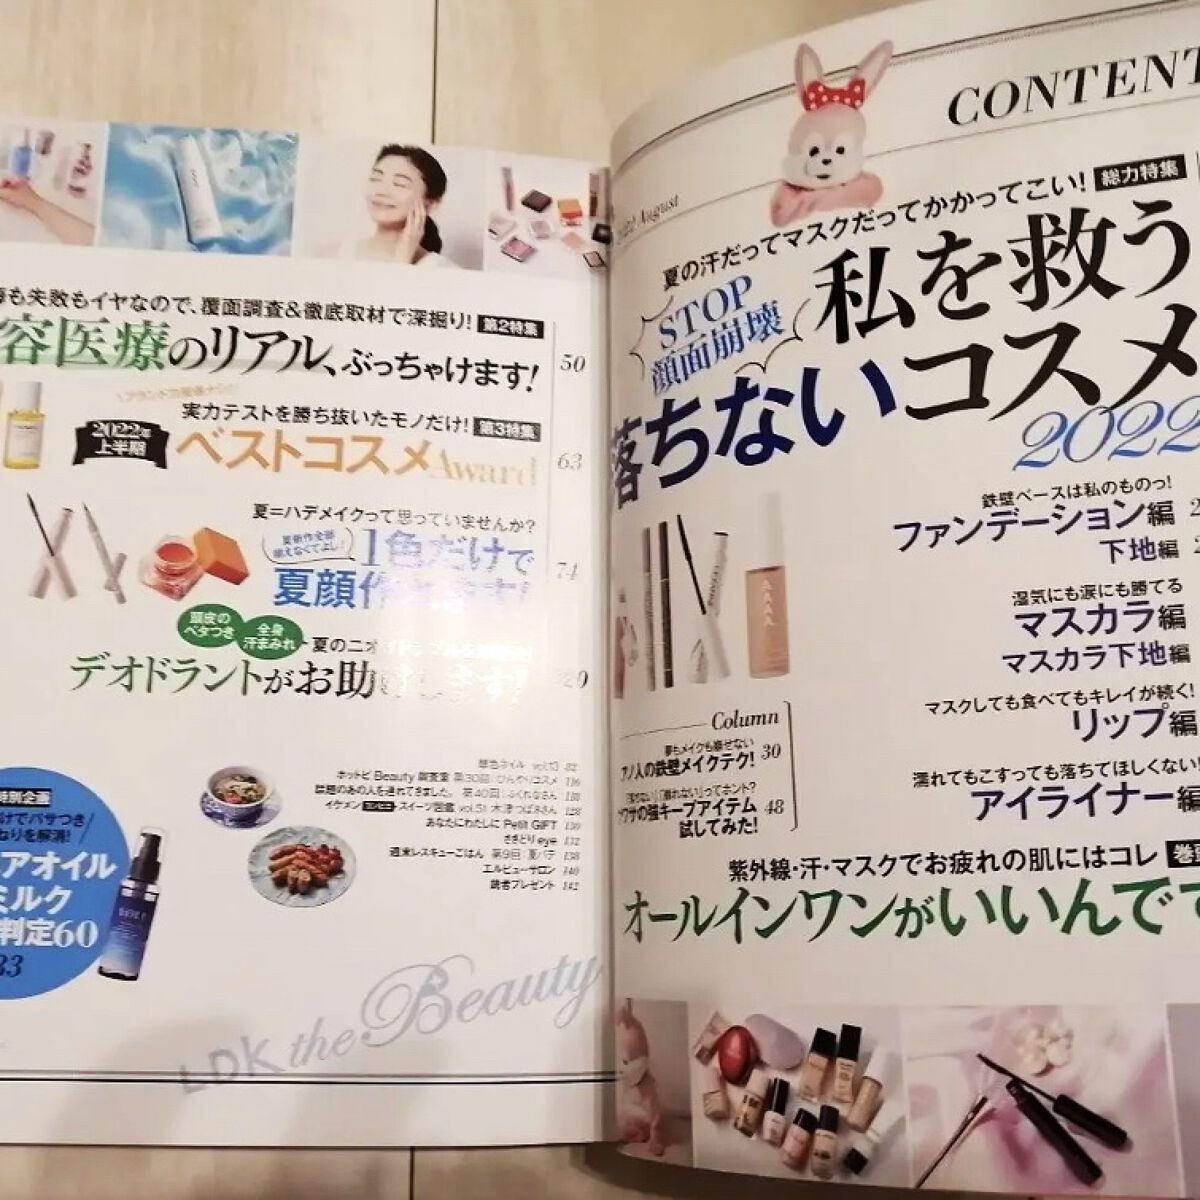 も失敗もイヤなので、覆面調査&徹底取材で深掘り! 第2特集
容医療のリアル、ぶっちゃけます! 50
実力テストを勝ち抜いたモノだけ! 第3特集
2022年
上半期
ベストコスメAward 63
夏=ハデメイクって思っていませんか?
1色だけで 74
夏顔作
頭皮の
ベタつき
全身
汗まみれ
夏のニオ
デオドラントがお助
ホットビ Beauty 調査室 第30回:ひんやりコスメ 116
話題のあの人を連れてきました。 第40回:ふくれなさん 118
イケメンコンビニスイーツ図鑑 vol.51 木津つばささん 128
あなたにわたしに Petit GIFT 130
さきどり eye 132
週末レスキューごはん 第9回:夏バテ 138
エルビューサロン 140
読者プレゼント 142
特別企画
けでパサつき
ねりを解消!
アオイル
ミルク
判定60
33
LDK the Beauty
CONTENT
2022 August
夏の汗だってマスクだってかかってこい! 総力特集
STOP
顔面崩壊
私を救う
落ちないコスメ
2022
鉄壁ベースは私のものっ!
ファンデーション編
下地編
湿気にも涙にも勝てる
マスカラ編
マスカラ下地編
マスクしても食べてもキレイが続く!
リップ編
濡れてもこすっても落ちてほしくない!
アイライナー編
Column
夢もメイクも崩せない
ノ人の鉄壁メイクテク! 30
ウワサの強キープアイテム 48
試してみた!
紫外線・汗・マスクでお疲れの肌にはコレ
オールインワンがいいんです